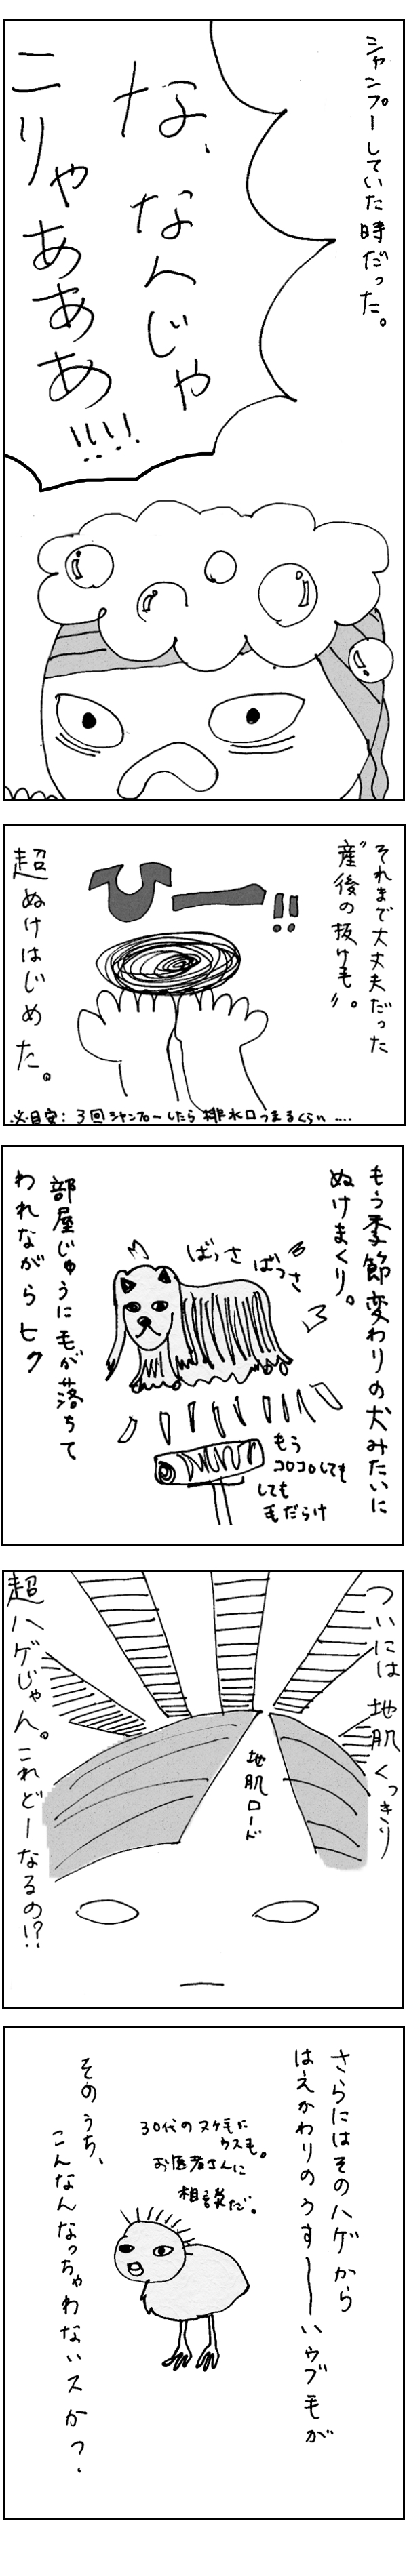 シャンプーしていた時だった。
な、なんじゃ
こりゃあああ
!!!!
それまで大丈夫だった
"産後の抜け毛"。
ひー!!
超ぬけはじめた。
※目安:3回シャンプーしたら排水口つまるくらい....
もう季節変わりの犬みたいに
ぬけまくり。
ばっさ
ばっさ
もう
コロコロしても
しても
毛だらけ
部屋じゅうに毛が落ちて
われながらヒク
ついには地肌くっきり
地肌ロード
超ハゲじゃん。これどーなるの!?
さらにはそのハゲから
はえかわりのうすーいウブ毛が
30代のヌケ毛に
ウス毛。
お医者さんに
相談だ。
そのうち、
こんなんなっちゃわないスかっ?